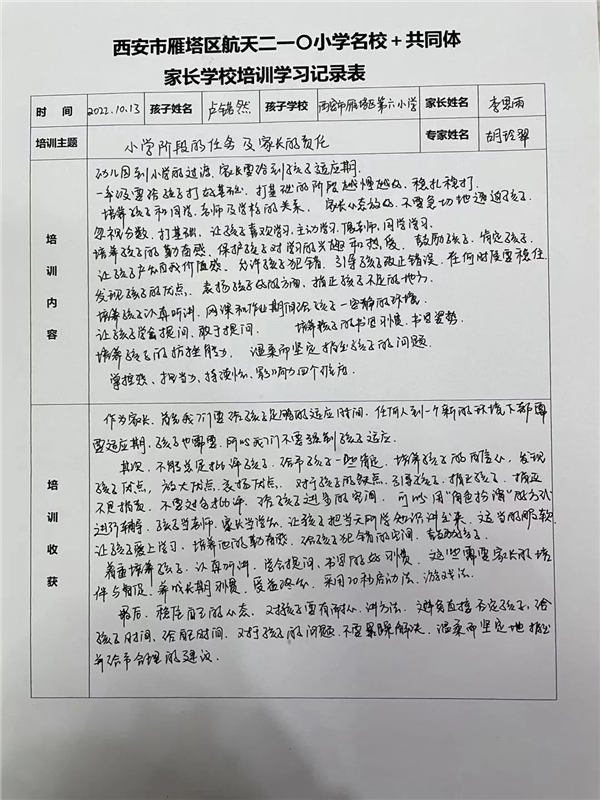 西安市雁塔区航天二一〇小学名校+共同体
家长学校培训学习记录表
时 间 2022.10.13 孩子姓名 卢锴然 孩子学校 西安市雁塔区第六小学 家长姓名 李思雨
培训主题 小学阶段的任务及家长的责任 专家姓名 胡玲翠
培训内容
幼儿园到小学的过渡,家长需给到孩子适应期.
一年级要给孩子打好基础,打基础的阶段越慢越好,稳扎稳打.
培养孩子和同学,老师及学校的关系. 家长心态放好,不要急切地逼迫孩子.
忽视分数,打基础,让孩子喜欢学习,主动学习,向老师,同学学习.
培养孩子的勤奋感,保护孩子对学习的兴趣和热度,鼓励孩子,肯定孩子.
让孩子产生自我价值感,允许孩子犯错,引导孩子改正错误,在何时候要稳住
发现孩子的优点,表扬孩子好的方面,指正孩子不足的地方.
培养孩子认真听讲,网课和作业期间给孩子一安静的环境.
让孩子学会提问,敢于提问. 培养孩子的书写习惯,书写姿势.
培养孩子的抗挫能力, 温柔而坚定指出孩子的问题.
掌控感、担当力、持续性、影响力四个维度.
培训收获
作为家长,首先我们要给孩子足够的适应时间,任何人到一个新的环境下都需
要适应期,孩子也需要,所以我们不要强制孩子适应.
其次,不能总是批评孩子,给予孩子一些肯定,培养孩子的自信心,发现
孩子优点,放大优点,表扬优点,对于孩子的缺点,引导孩子,指正孩子,指正
不是指责,不要过分批评,给孩子进步的空间,可以用“角色扮演”的方式
进行辅导,孩子当老师,家长当学生,让孩子把当天所学知识讲出来,适当的
让孩子爱上学习,培养他的勤奋感,给孩子犯错的空间,鼓励孩子.
着重培养孩子,认真听讲,学会提问,书写的好习惯,这些需要家长的陪
伴与督促,养成长期习惯,受益终生,采用20秒启动法,游戏法.
最后,稳住自己的心态,对孩子要有耐心,讲方法,避免直接否定孩子,给
孩子时间,给自己时间,对于孩子的问题,不要暴躁解决,温柔而坚定地指出
并给予合理的建议.